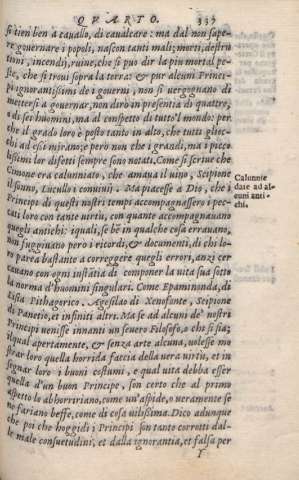 QVARTO. 337
si tien ben a cavallo, di cavalcare: ma dal non sape-
re governare i popoli, nascon tanti mali; morti, destru
tioni, incendij, ruine, che si può dir la più mortal pe-
ste, che si trovi sopra la terra: & pur alcuni Princi-
pi ignorantissimi de i governi, non si vergognano di
mettersi a governar, non dirò in presentia di quattro,
o di sei huomini, ma al conspetto di tutto'l mondo: per
che il grado loro è posto tanto in alto, che tutti gli oc-
chi ad essi mirano; & però non che i grandi, ma i picco
lissimi lor difetti sempre sono notati. Come si scrive che
Cimone era calunniato, che amava il vino, Scipione
il sonno, Lucullo i convivij. Ma piacesse a Dio, che i
Principi di questi nostri tempi accompagnassero i pec-
cati loro con tante virtù, con quante accompagnavano
quegli antichi: iquali, se bè in qualche cosa erravano,
non fuggivano però i ricordi, & documenti, di chi lo-
ro parea bastante a correggere quegli errori, anzi cer
cavano con ogni instãtia di componer la vita sua sotto
la norma d'huomini singulari. Come Epaminonda, di
Lisia Pithagorico. Agesilao di Xenofonte, Scipione
di Panetio, et infiniti altri. Ma se ad alcuni de' nostri
Principi venisse innanti un severo Filosofo, o chi si sia;
ilqual apertamente, & senza arte alcuna, volesse mo
strar loro quella horrida faccia della vera virtù, et in
segnar loro i buoni costumi, e qual vita debba esser
quella d'un buon Principe, son certo che al primo
aspetto lo abhorririano, come un'aspide, o veramente se
ne fariano beffe, come di cosa vilissima. Dico adunque
che poi che hoggidi i Principi son tanto corrotti dal-
le male consuetudini, et dalla ignorantia, et falsa per
Y
Calunnie
date ad al
cuni anti-
chi.